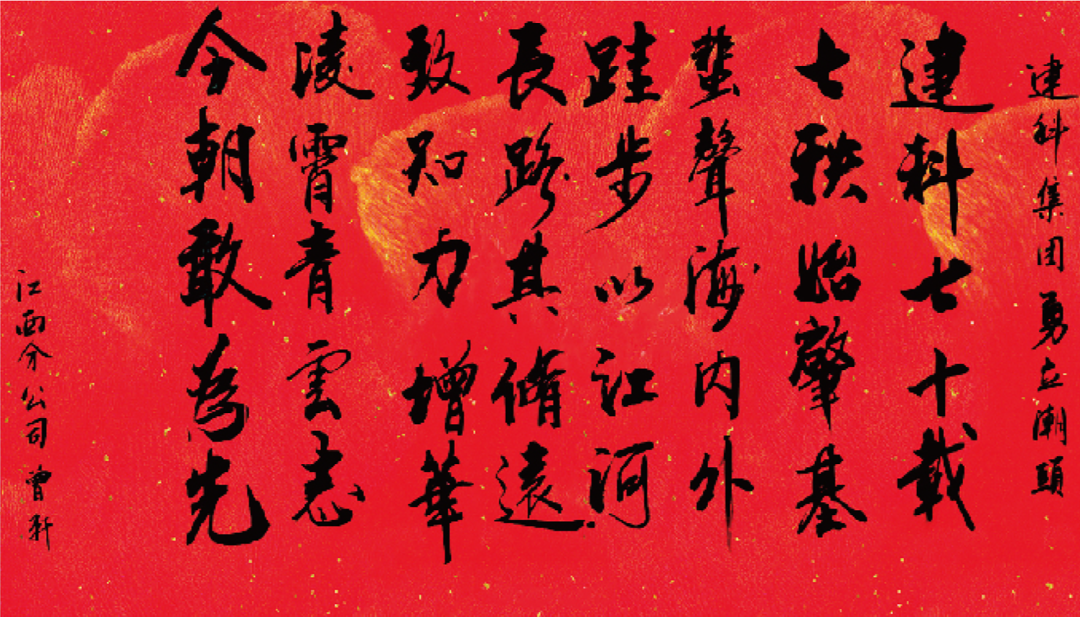 建科集团勇立潮頭
建科七十載
七秩始肇基
蜚聲海内外
跬步以江河
長路其脩遠
致知力增華
淩霄青雲志
今朝敢為先
江西分公司 曾